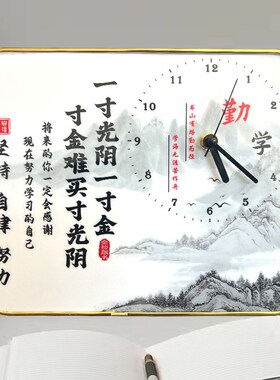 一寸光阴一寸金
寸金难买寸光阴
将来的你一定会感谢
现在努力学习的自己
坚持 自律 努力
勤
学
书山有路勤为径
学海无涯苦作舟
12
1
2
3
4
5
6
7
8
9
10
11